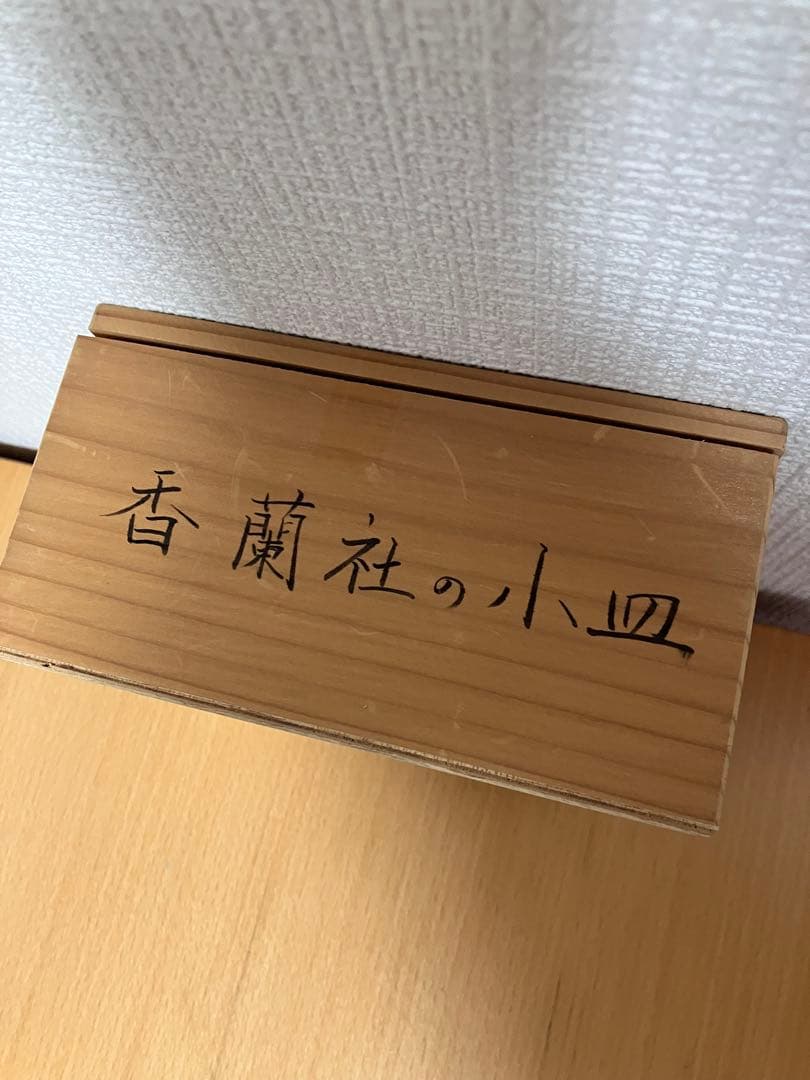 香蘭社の小皿